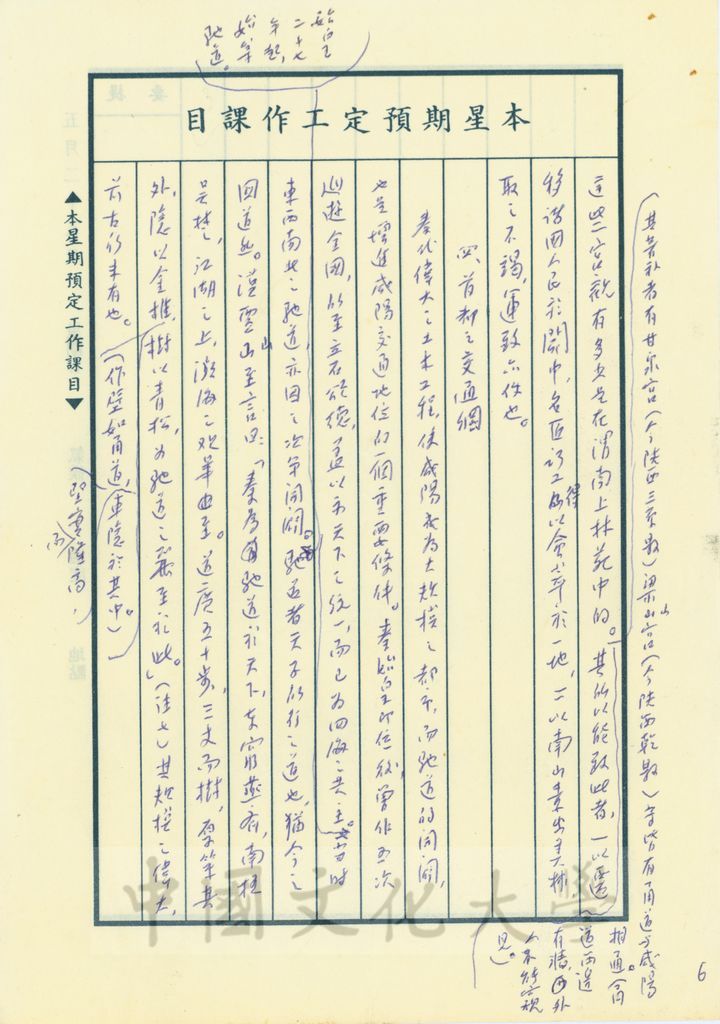 始皇
二十七
年起，
始築
馳道。
本星期預定工作課目
（其著於者有甘泉宮（今陝西三原縣）梁山宮（今陝西乾縣）等皆有甬道與咸陽
相通（甬
道兩邊
有牆，因外
人不能窺視
見）。
這些宮觀有多少是在渭南上林苑中的。其所以能致此者，一以遷
移諸國人民於關中，名匠巧工得以會萃於一地，二以南山素出美材
取之不竭，運致亦便也。
四、首都之交通網
秦代偉大之土木工程，使咸陽成為大規模之都市，而馳道的開闢，
也是增進咸陽交通地位的一個重要條件。秦始皇即位後，曾作五次
巡遊全國，所至立石頌德，蓋以示天下之統一，而已為四海之共主。當時
東西南北之馳道，亦因之次第開闢。馳道者天子所行之道也，猶今之
國道然。漢賈山至言曰：「秦為馳道於天下，東窮燕齊，南極
吳楚，江湖之上，瀕海之觀畢至。道廣五十步，三丈而樹，厚築其
外，隱以金椎，樹以青松，為馳道之麗至於此。」（註七）其規模之偉大，
前古所未有也。（作壁如甬道，車隱於其中。）
堅實隆高，
而
▲本星期預定工作課目▼
中國文化大學
6